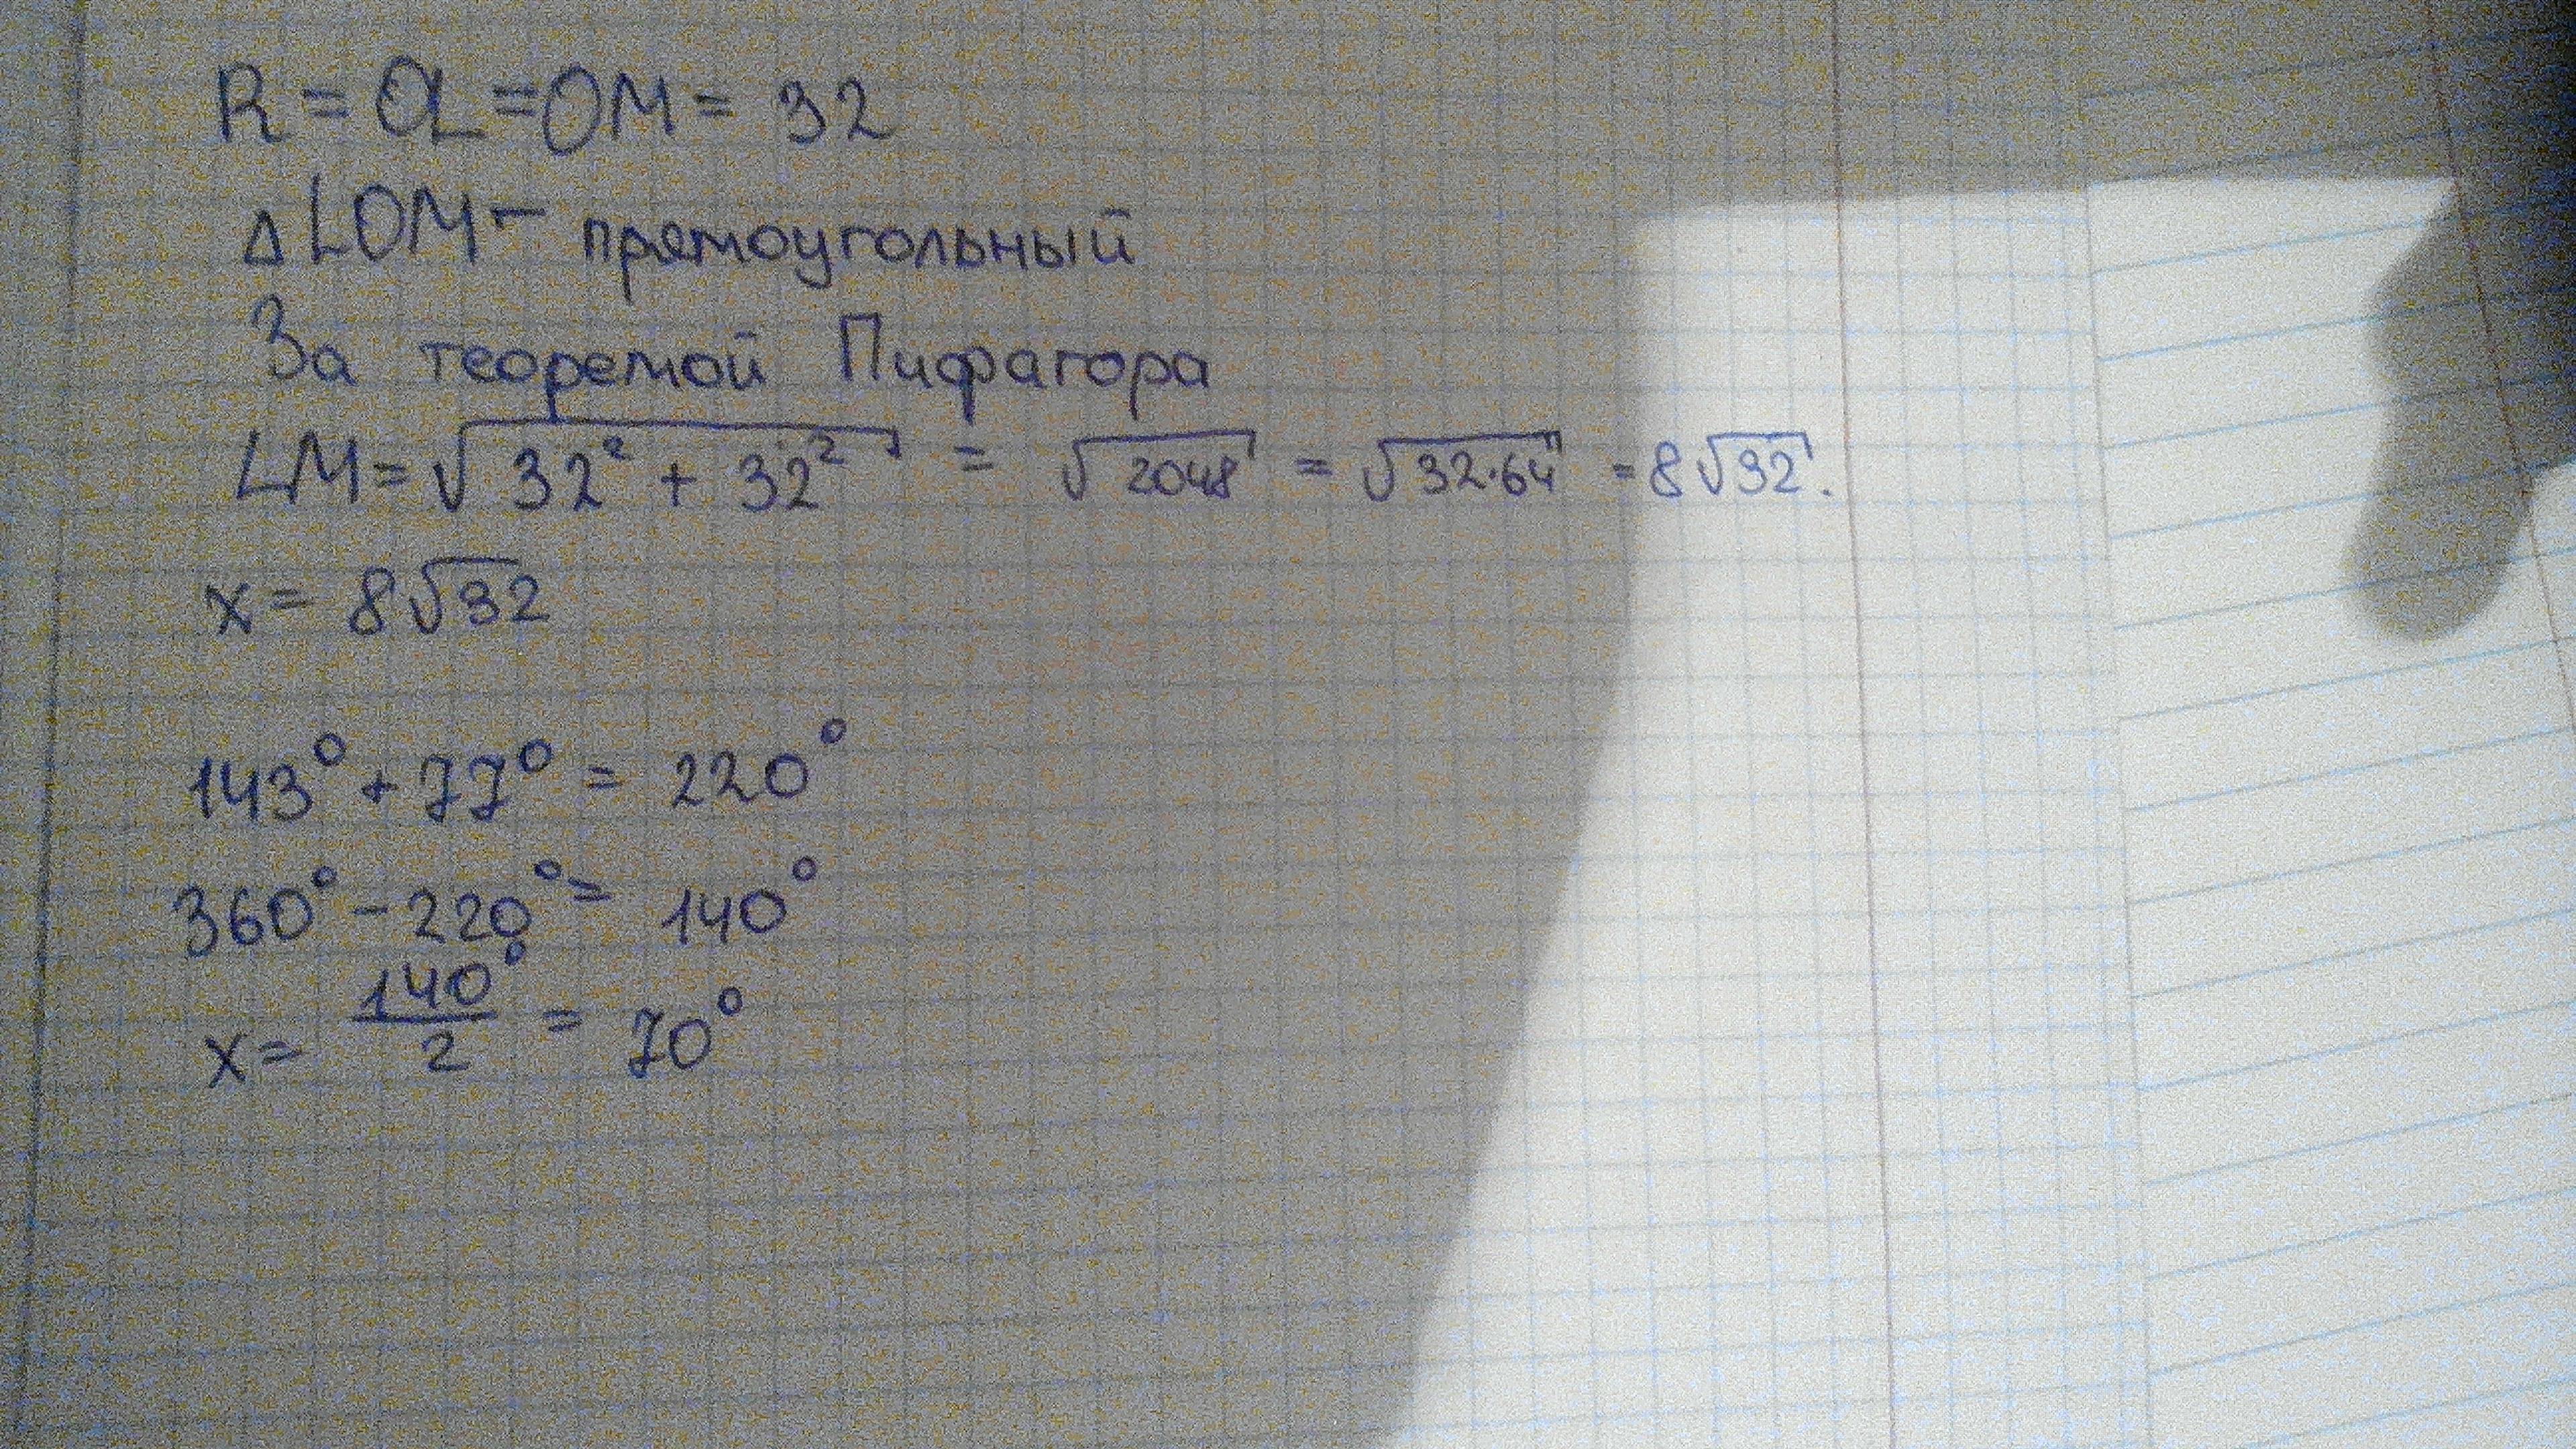 R = OL = OM = 32
Δ LOM - прямоугольный
За теоремой Пифагора
LM = √32² + 32² = √2048 = √32·64 = 8√32.
x = 8√32
143° + 77° = 220°
360° - 220° = 140°
x = 140°/2 = 70°